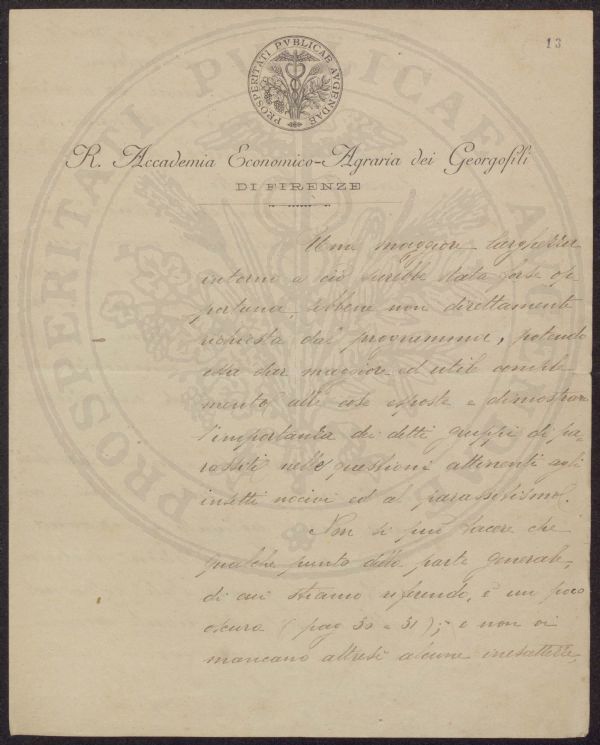 13
PROSPERITATI PVBLICAE AVGENDAE
R. Accademia Economico-Agraria dei Georgofili
DI FIRENZE
Una maggiore larghezza
intorno a ciò sarebbe stata forse op
portuna, sebbene non direttamente
richiesta dal programma, potendo
essa dar maggiore ed utile comple
mento alle cose esposte e dimostrare
l'importanza dei detti gruppi di pa-
rassiti nelle questioni attinenti agli
insetti nocivi ed al parassitismo.
Non si può tacere che
qualche punto della parte generale,
di cui stiamo riferendo, è un poco
oscuro (pag 30 e 31); e non vi
mancano altresì alcune inesattezze,